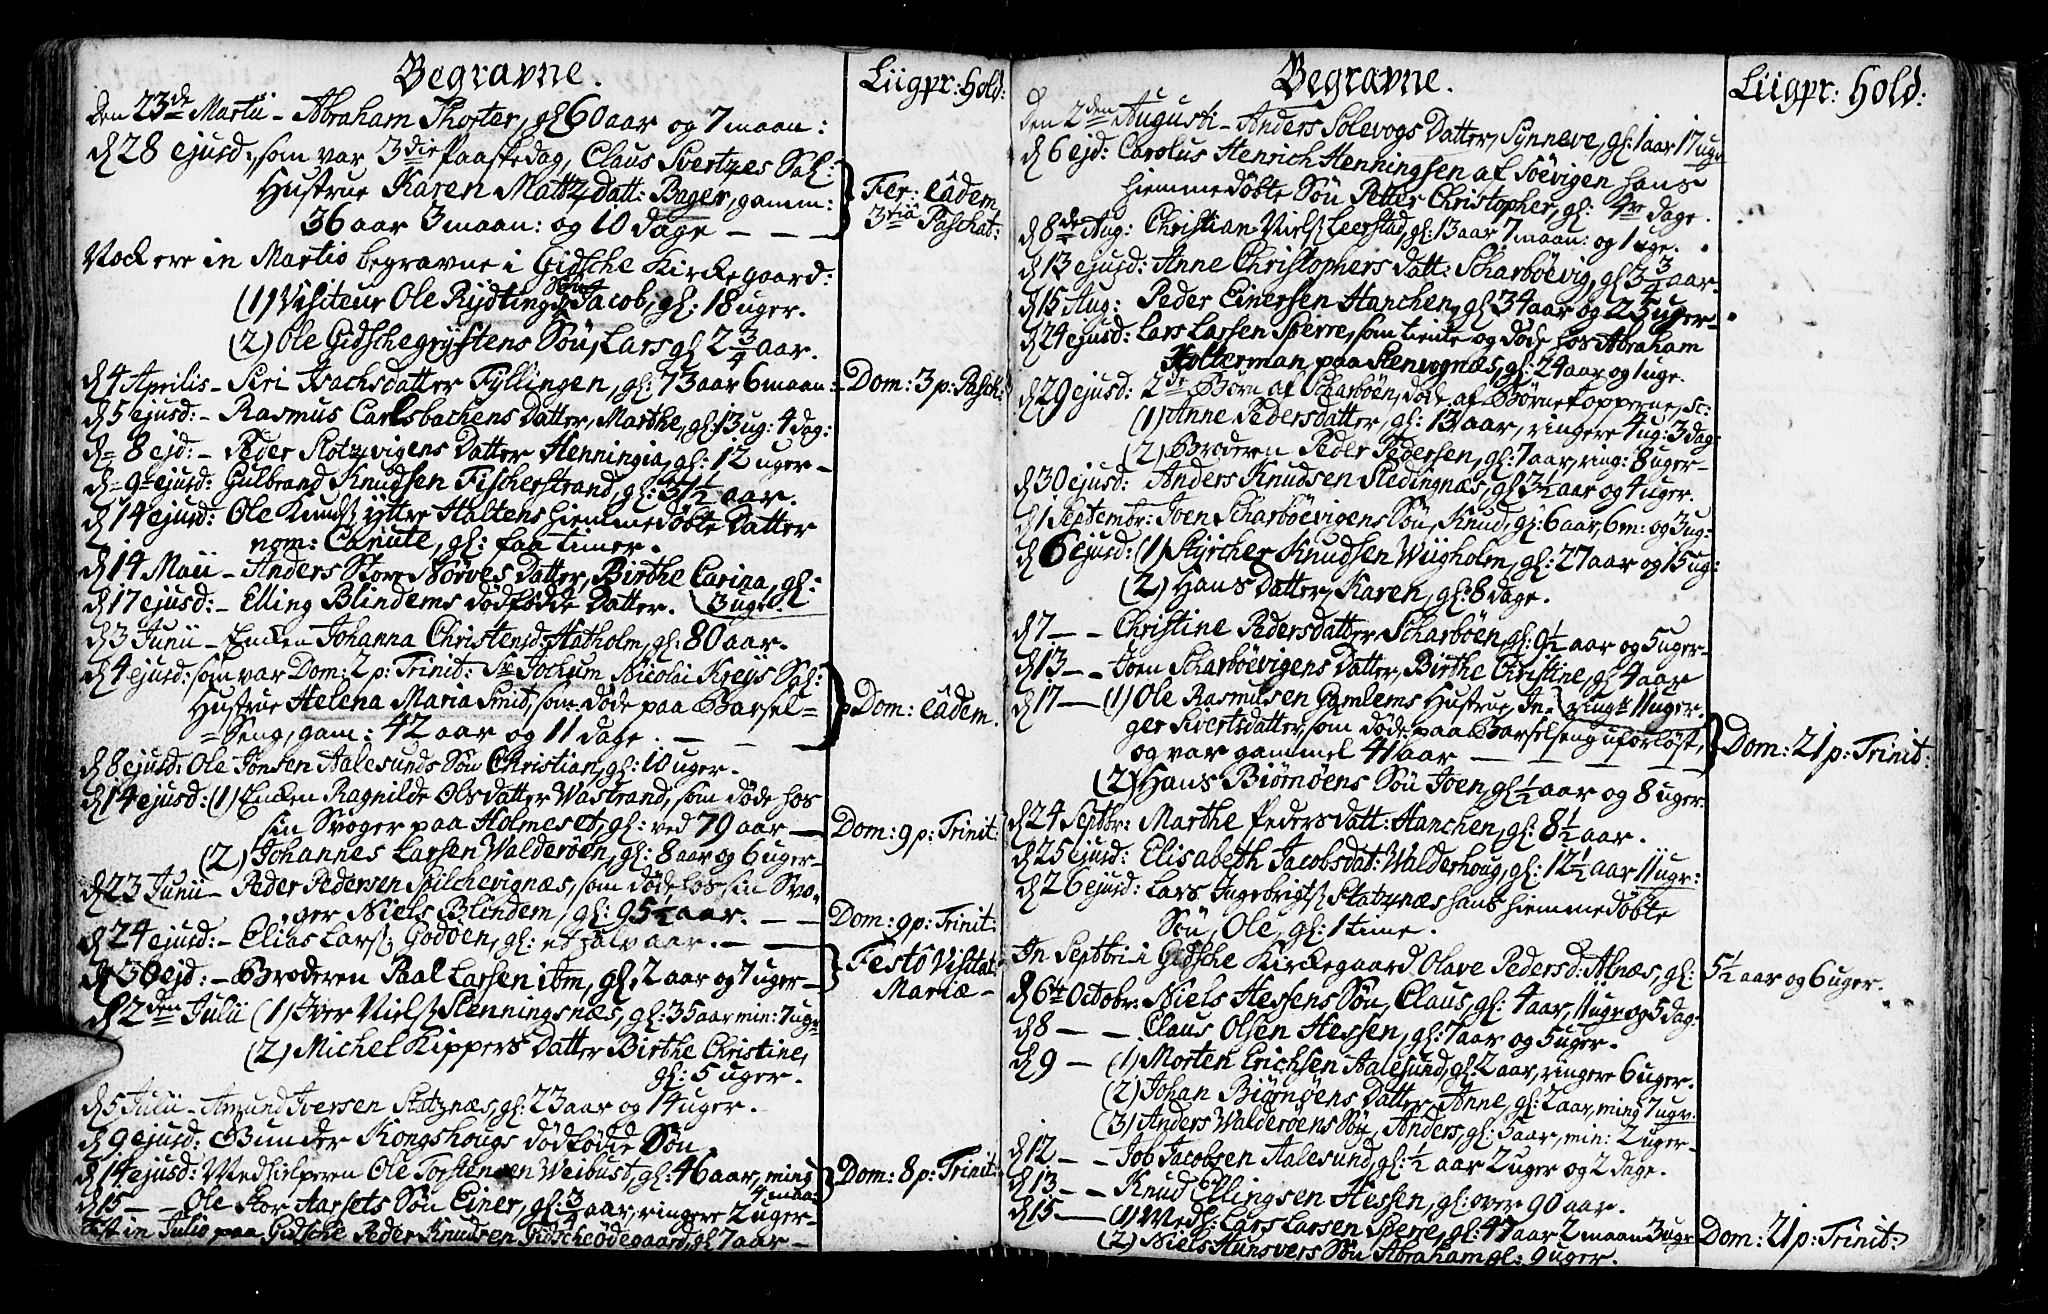 Begravne.
Liigpr: Hold:
Den 23de Martii - Abraham Thorter, gl: 60 aar og 7 maan:
d 28 ejusd: som var 3die Paaskedag, Claus Svertzes Sal:
Hustrue Karen Mattz datt: Bager, gamm:
36 aar 3 maan: og 10 dage — — —
Fer: eâdem
3tia Paschat:
Nock ere in Martio begravne i Gidsche Kirckegaard:
(1) Visiteur Ole Rydtings Søn Jacob, gl: 18 uger.
(2) Ole Gidschegrÿttens Søn, Lars gl 2 3/4 aar.
d 4 Aprilis - Siri Isachsdatter Fyllingen, gl: 73 aar 6 maan:
Dom: 3 p: Pasch:
d 5 ejusd: - Rasmus Carlsbachens Datter, Marthe, gl: 13 ug: 4 dag:
d 8 ejd: - Peder Slotzvigens Datter Henningia, gl: 12 uger -
d 9 ejusd: Gulbrand Knudsen Fischerstrand, gl: 31 1/2 aar.
d 14 ejusd: Ole Knuds: ÿttre Haltens hiemmedøbte Datter
nom: Canute, gl: faa timer.
d 14 Maii - Anders Store Nørves Datter, Birthe Carina, gl:
3 uger
d 17 ejusd: - Elling Blindems dødfødde Datter.
d 3 Junii - Encken Johanna Christensd: Hatholm, gl: 80 aar.
d 4 ejusd: som var Dom: 2 p: Trinit: Sr Jochum Nicolai Kreÿs Sal:
Hustrue Helena Maria Smit, som døde paa Barsel=
=Seng, gam: 42 aar og 11 dage. — — —
Dom: eâdem.
d 8 ejusd: Ole Jonsen Aalesunds Søn Christian, gl: 10 uger.
d 14 ejusd: (1) Encken Ragnilde Olsdatter Wastrand, som døde hos
sin Svoger paa Holmeset, gl: ved 79 aar —
Dom: 9 p: Trinit:
(2) Johannes Larsen Walderøen, gl: 8 aar og 6 uger -
d 23 Junii - Peder Pedersen Spilchevignæs, som døde hos sin Svo=
ger Niels Blindem, gl: 95 1/2 aar. — —
Dom: 9 p: Trinit:
d 24 ejusd: - Elias Lars: Godøen, gl: et halv aar. — —
d 30 ejd: - Broderen Paal Larsen ibm, gl: 2 aar og 7 uger -
Festo Visitat:
Mariæ -
d 2den Julii (1) Iver Niels: Slenningsnæs, gl: 35 aar min: 7 ugr
(2) Michel Kippers Datter Birthe Christine,
gl: 5 uger.
d 5 Julii - Amund Iversen Slatznæs, gl: 23 aar og 14 uger.
d 9 ejusd: Gunder Kongshougs dødfødde Søn.
d 14 ejusd: Medhielperen Ole Torstensen Weibust, gl: 46 aar, ming
4 maa:
Dom: 8 p: Trinit:
d 15 — - Ole Stor Aarsets Søn Einer, gl: 3/4 aar, ringere 2 uger -
Est in Julio paa Gidsche Peder Knudsen Gidscheødegaard, gl: 7 aar -
Begravne.
Liigpr: Hold:
Den 2den Augusti - Anders Solevogs Datter, Synneve, gl: 1 aar 17 uge
d 6 ejd: Carolus Henrich Henningsen af Søevigen hans
hiemmedøbte Søn Petter Christopher, gl: 4re dage.
d 8de Aug: Christian Niels: Leerstad, gl: 13 aar 7 maan: og 1 uge.
d 13 ejusd: Anne Christophers datt: Scharbøevig, gl 3 3/4 aar.
d 15 Aug: Peder Einersen Hanchen, gl 34 aar og 25 uger -
d 24 ejusd: Lars Larsen Sperre, som tiente og døde hos Abraham
Holterman paa Stenvognæs, gl: 24 aar og 1 uge.
d 29 ejusd: 2de Børn af Scharbøen, døde af Børnekopperne, sc:
(1) Anne Pedersdatter, gl: 13 aar, ringere 4 ug: 3 dag:
(2) Broderen Peder Pedersen, gl: 7 aar, ring: 8 uger -
d 30 ejusd: Anders Knudsen Sledingnæs, gl 3 1/2 aar og 4 uger.
d 1 Septembr: Joen Scharbøevigens Søn, Knud, gl: 6 aar, 6 m: og 3 ug:
d 6 ejusd: (1) Styrcher Knudsen Wiigholm, gl: 27 aar og 15 ug:
(2) Hans Datter, Karen, gl: 8 dage.
d 7 — - Christine Pedersdatter Scharbøen, gl: 9 1/2 aar og 5 uger -
d 13 — - Joen Scharbøevigens Datter, Birthe Christine, gl 4 aar
ringr 11 uger.
d 17 — (1) Ole Rasmussen Gamlems Hustrue, In=
ger Sivertsdatter, som døde paa Barselseng uforløst,
og var gammel 41 aar — — — —
Dom: 21 p: Trinit:
(2) Hans Biørnøens Søn Joen, gl 1/2 aar og 8 uger:
d 24 Septbr: Marthe Peders datt: Hanchen, gl: 8 1/2 aar.
d 25 ejusd: Elisabeth Jacobsdat: Walderhoug, gl: 12 1/2 aar 11 ugr:
d 26 ejusd: Lars Ingebrigts: Slatznæs hans hiemmedøbte
Søn, Ole, gl: 1 time.
In Septbri i Gidsche Kirckegaard Olave Pedersd: Alnæs, gl: 5 1/2 aar og 6 uger.
d 6te Octobr: Niels Hessens Søn, Claus, gl: 4 aar, 11 ugr og 5 dag:
d 8 — - Claus Olsen Hessen, gl: 7 aar og 5 uger.
d 9 — (1) Morten Erichsen Aalesund, gl: 2 aar, ringere 6 uger.
(2) Johan Biørnøens Datter, Anne, gl: 2 aar, ming 7 ugr.
(3) Anders Walderøens Søn, Anders, gl: 5 aar, min: 2 uger -
d 12 — - Job Jacobsen Aalesund, gl: 1/2 aar 2 uger og 2 dage.
d 13 — - Knud Ellingsen Hessen, gl: over 90 aar.
d 15 — (1) Medh: Lars Larsen Sperre, gl: 47 aar 2 maan 3 ugr
Dom: 21 p: Trinit:
(2) Niels Hunsvers Søn Abraham gl: 9 uger.